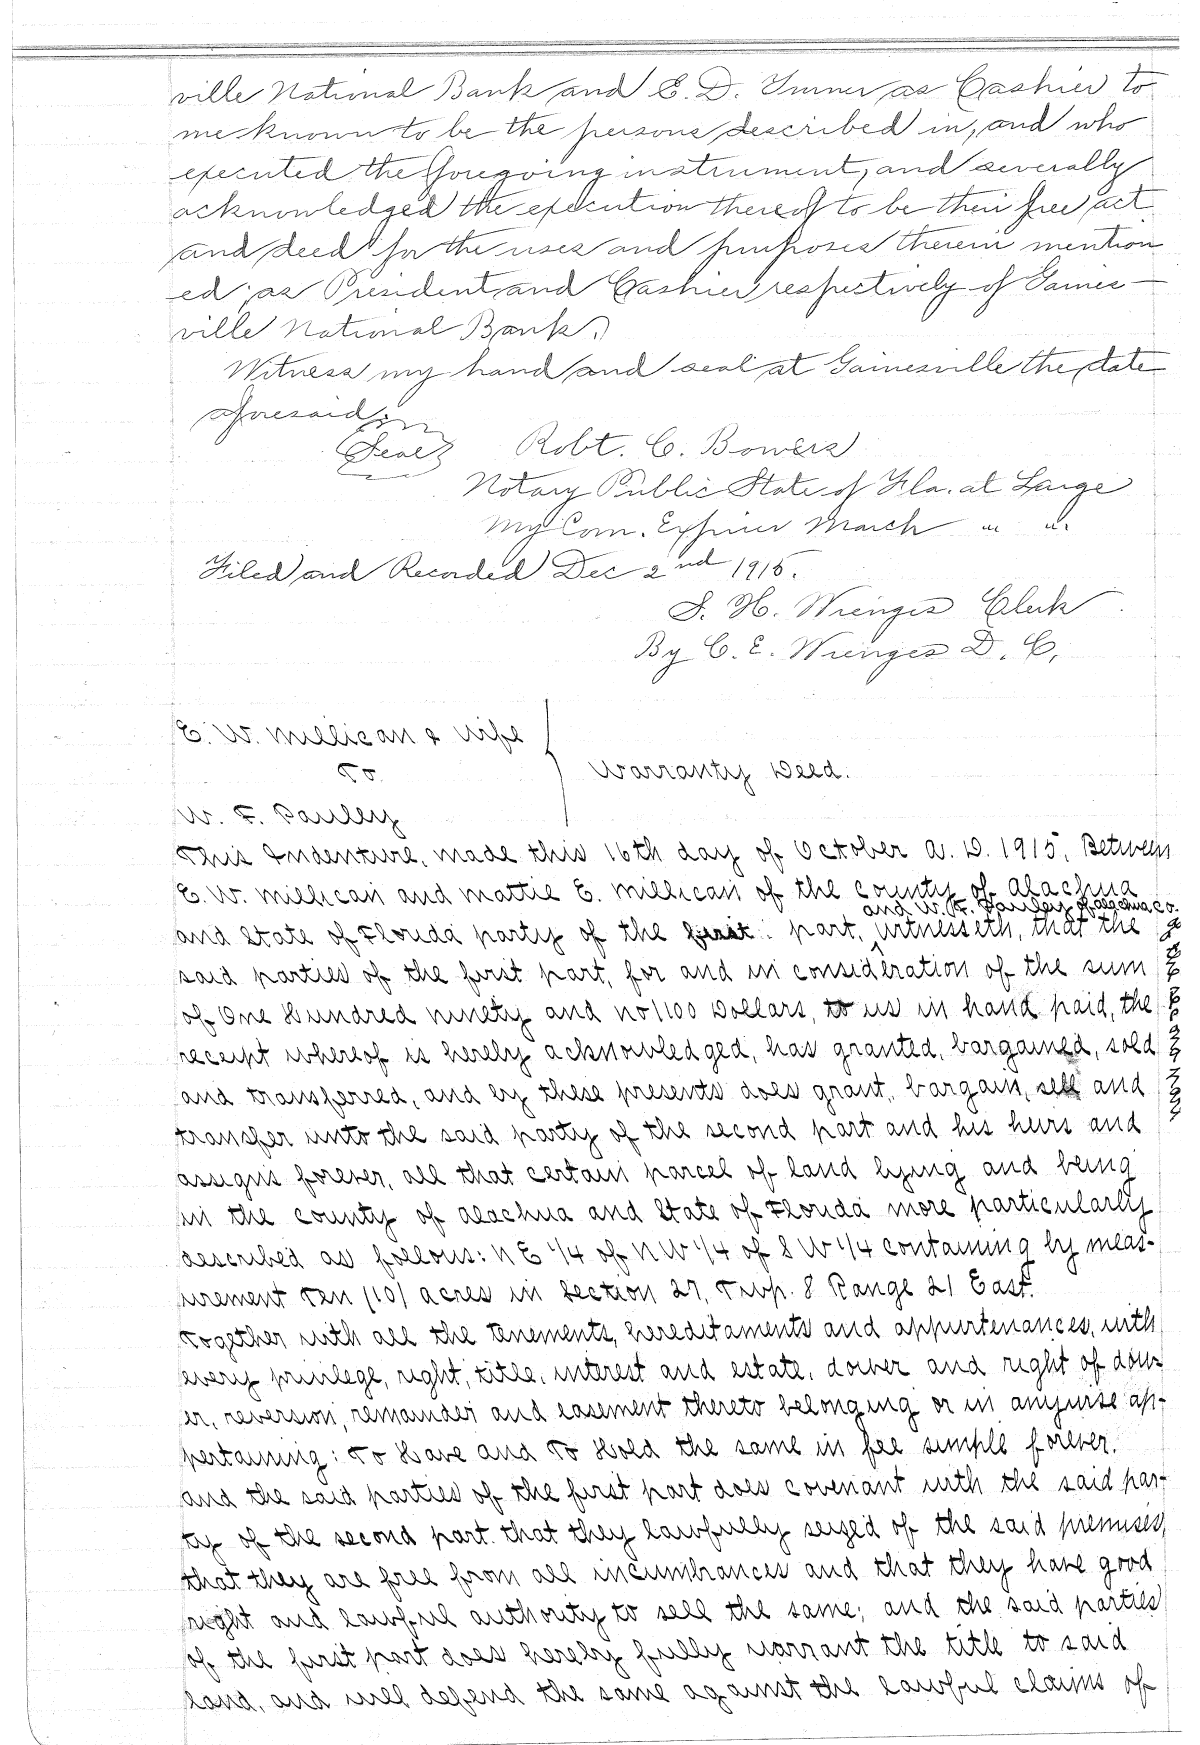 ville National Bank and E. D. Turner as Cashier to
me known to be the persons described in, and who
executed the foregoing instrument, and severally
acknowledged the execution thereof to be their free act
and deed for the uses and purposes therein mention
ed; as President and Cashier respectively of Gaines-
ville National Bank.
Witness my hand and seal at Gainesville the date
aforesaid.
Seal Robt. C. Bowers
Notary Public State of Fla. at Large
My Com. Expires March " "
Filed and Recorded Dec 2nd 1915.
S. H. Wienges Clerk
By C. E. Wienges D. C.
E. W. Millican & Wife
To Warranty Deed.
W. F. Pauley
This Indenture, made this 16th day of October A. D. 1915, Between
E. W. Millican and Mattie E. Millican of the county of Alachua
and W. F. Pauley of Alachua Co.
and State of Florida party of the first part, witnesseth, that the
said parties of the first part, for and in consideration of the sum
of One Hundred ninety and no/100 Dollars, to us in hand paid, the
receipt whereof is hereby acknowledged, has granted, bargained, sold
and transferred, and by these presents does grant, bargain, sell and
transfer unto the said party of the second part and his heirs and
assigns forever, all that certain parcel of land lying and being
in the county of Alachua and State of Florida more particularly
described as follows: N E 1/4 of N W 1/4 of S W 1/4 containing by meas-
urement Ten (10) acres in Section 27, Twp. 8 Range 21 East.
Together with all the tenements, hereditaments and appurtenances, with
every privilege, right, title, interest and estate, dower and right of dow-
er, reversion, remainder and easement thereto belonging or in anywise ap-
pertaining: To Have and To Hold the same in fee simple forever.
and the said parties of the first part does covenant with the said par-
ty of the second part that they lawfully seized of the said premises,
that they are free from all incumbrances and that they have good
right and lawful authority to sell the same; and the said parties
of the first part does hereby fully warrant the title to said
land, and will defend the same against the lawful claims of